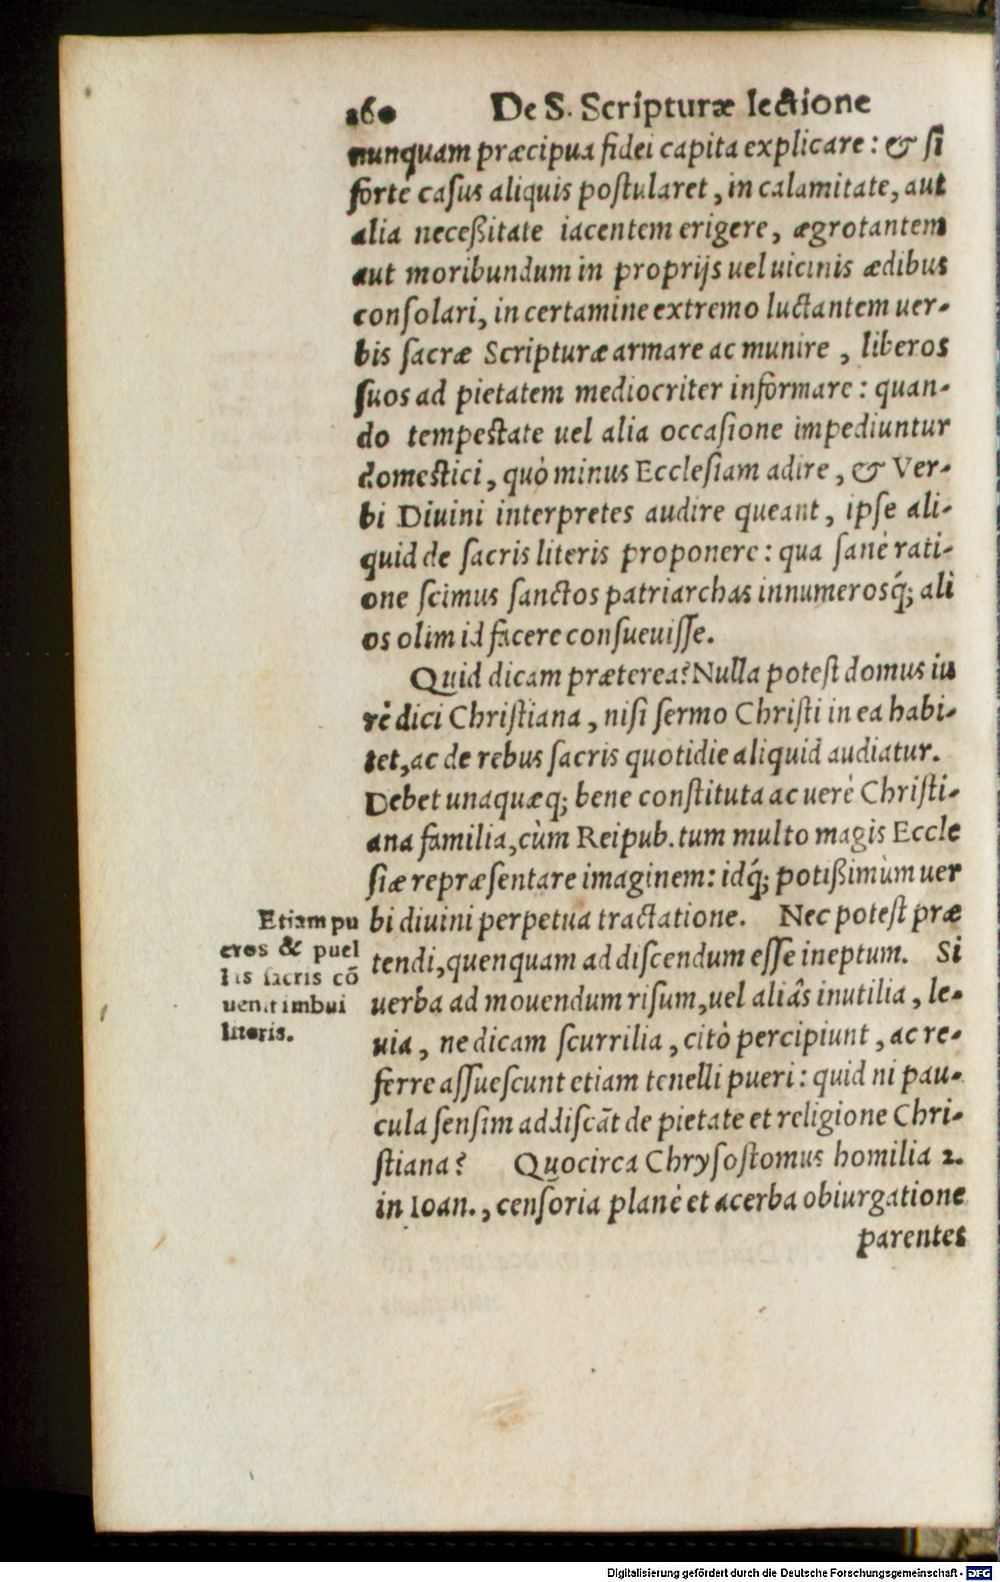 260 De S. Scripturæ lectione
nunquam præcipua fidei capita explicare: & ſi
forte caſus aliquis poſtularet, in calamitate, aut
alia neceßitate iacentem erigere, ægrotantem
aut moribundum in proprijs uel uicinis ædibus
conſolari, in certamine extremo luctantem uer-
bis ſacræ Scripturæ armare ac munire, liberos
ſuos ad pietatem mediocriter informare: quan-
do tempeſtate uel alia occaſione impediuntur
domeſtici, quò minus Eccleſiam adire, & Ver-
bi Diuini interpretes audire queant, ipſe ali-
quid de ſacris literis proponere: qua ſanè rati-
one ſcimus ſanctos patriarchas innumerosq́; ali
os olim id facere conſueuiſſe.
Quid dicam præterea? Nulla poteſt domus iu
rè dici Chriſtiana, niſi ſermo Chriſti in ea habi-
tet, ac de rebus ſacris quotidie aliquid audiatur.
Debet unaquæq; bene conſtituta ac uerè Chriſti-
ana familia, cùm Reipub. tum multo magis Eccle
ſiæ repræſentare imaginem: idq́; potißimùm uer
bi diuini perpetua tractatione. Nec poteſt præ
tendi, quenquam ad diſcendum eſſe ineptum. Si
uerba ad mouendum riſum, uel aliâs inutilia, le-
uia, ne dicam ſcurrilia, citò percipiunt, ac re-
ferre aſſueſcunt etiam tenelli pueri: quid ni pau-
cula ſenſim addiſcãt de pietate et religione Chri-
ſtiana? Quocirca Chryſoſtomus homilia 2.
in Ioan., cenſoria planè et acerba obiurgatione
parentes
Etiam pu
eros & puel
lis ſacris cõ
uenit imbui
literis.
Digitalisierung gefördert durch die Deutsche Forschungsgemeinschaft - DFG